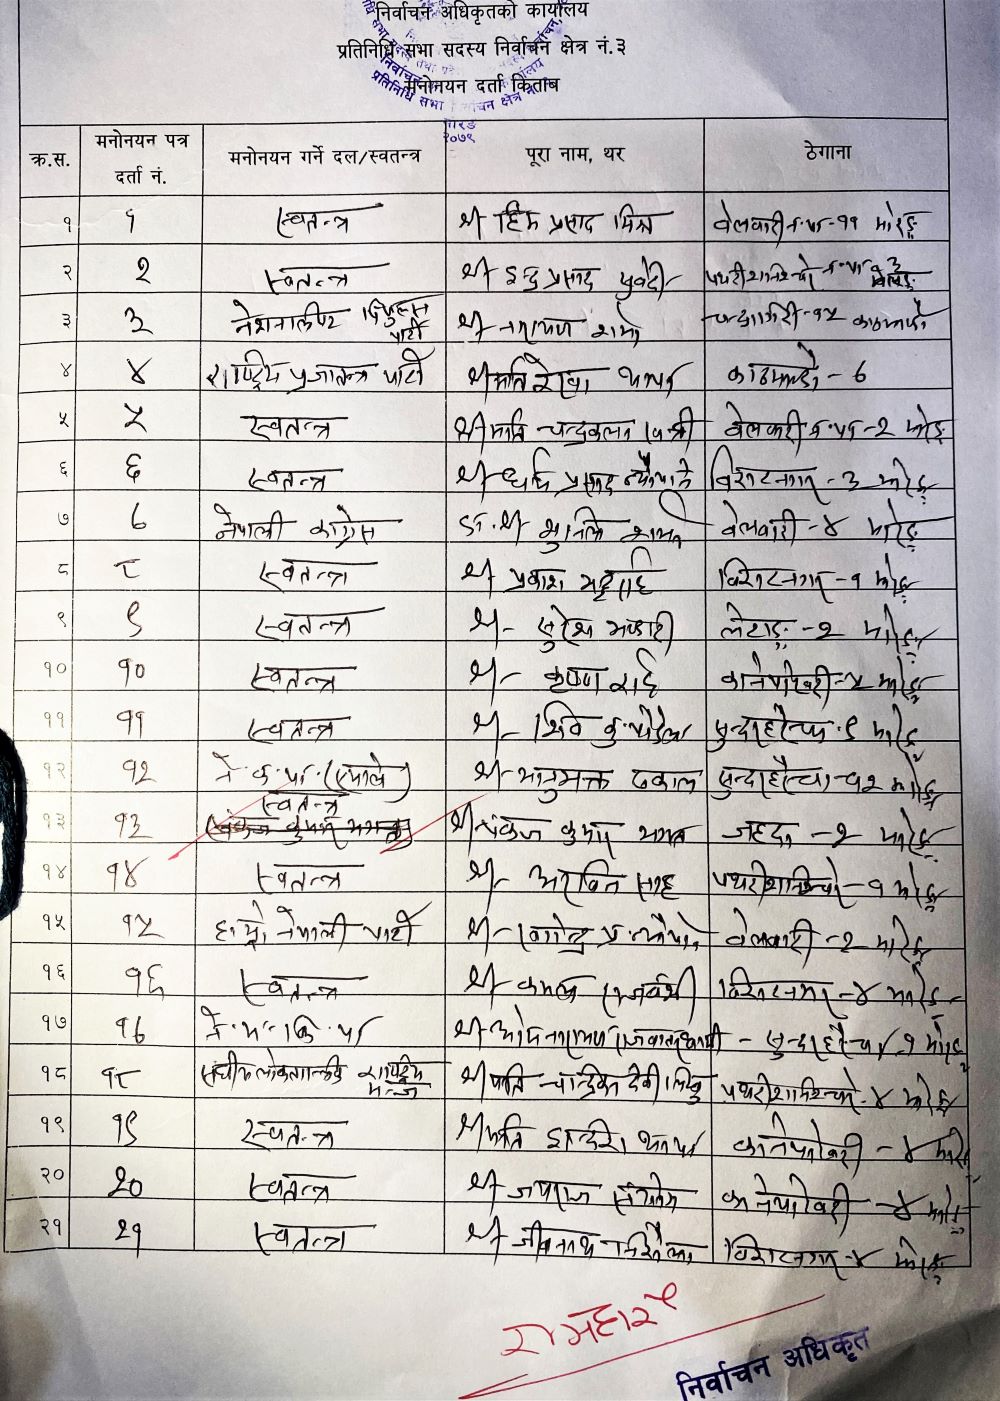 निर्वाचन अधिकृतको कार्यालय
प्रतिनिधि सभा सदस्य निर्वाचन क्षेत्र नं.३
मनोनयन दर्ता किताब
२०७९
क्र.स. मनोनयन पत्र दर्ता नं. मनोनयन गर्ने दल/स्वतन्त्र पूरा नाम, थर ठेगाना
१ १ स्वतन्त्र श्री हिम प्रसाद मिश्र बेलवारी न.पा-११ मोरङ्ग
२ २ स्वतन्त्र श्री इन्द्र प्रसाद पथरीशनिश्चरे न.पा
३ ३ नेशनालिष्ट पिपुल्स पार्टी श्री नारायण शर्मा चन्द्रागिरी-१५ काठमाण्डौ
४ ४ राष्ट्रिय प्रजातन्त्र पार्टी श्रीमति रेखा थापा काठमाण्डौ - ७
५ ५ स्वतन्त्र श्रीमति चन्द्रकला बेलवारी न.पा-२ मोरङ्ग
६ ६ स्वतन्त्र श्री प्रसाद न्यौपाने विराटनगर-३ मोरङ्ग
७ ७ नेपाली कांग्रेस डा. श्री सुनिल शर्मा बेलवारी-४ मोरङ्ग
८ ८ स्वतन्त्र श्री प्रकाश भट्टराई विराटनगर-१ मोरङ्ग
९ ९ स्वतन्त्र श्री सुरेश भण्डारी लेटाङ-२ मोरङ्ग
१० १० स्वतन्त्र श्री कृष्ण राई कानेपोखरी-५ मोरङ्ग
११ ११ स्वतन्त्र श्री शिव कु. पौडेल सुन्दरहरैंचा-९ मोरङ्ग
१२ १२ ने.क.पा.(एमाले) श्री भानुभक्त ढकाल सुन्दरहरैंचा-१२ मोरङ्ग
१३ १३ स्वतन्त्र श्री पंकज कुमार भगत जहदा-२ मोरङ्ग
१४ १४ स्वतन्त्र श्री अरविन साह पथरीशनिश्चरे-१ मोरङ्ग
१५ १५ हाम्रो नेपाली पार्टी श्री खगेन्द्र प्र. न्यौपाने बेलवारी-२ मोरङ्ग
१६ १६ स्वतन्त्र श्री कमल राजवंशी विराटनगर-४ मोरङ्ग
१७ १७ ने.म.कि.पा श्री ओमनारायण सुन्दरहरैंचा-१ मोरङ्ग
१८ १८ संघीय लोकतान्त्रिक राष्ट्रिय मञ्च श्रीमति चन्द्रिका देवी लिम्बु पथरीशनिश्चरे-४ मोरङ्ग
१९ १९ स्वतन्त्र श्रीमति इन्दिरा थापा कानेपोखरी-४ मोरङ्ग
२० २० स्वतन्त्र श्री जयराज कानेपोखरी-४ मोरङ्ग
२१ २१ स्वतन्त्र श्री जीवनाथ विराटनगर-४ मोरङ्ग
निर्वाचन अधिकृत